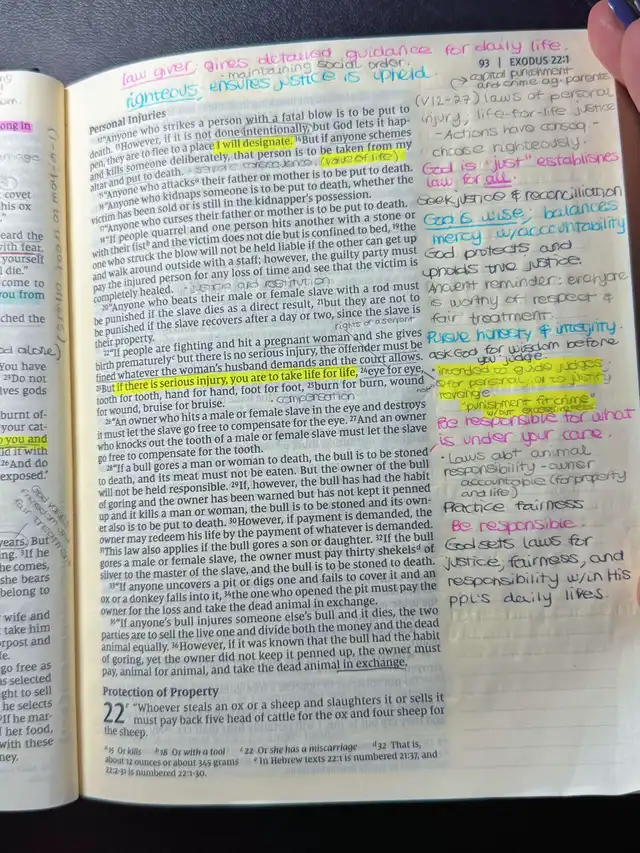 law giver, gives detailed guidance for daily life.
· maintaining social order.
righteous, ensures justice is upheld.
93 | EXODUS 22:1
Personal Injuries
12"Anyone who strikes a person with a fatal blow is to be put to
death. 13However, if it is not done intentionally, but God lets it hap-
pen, they are to flee to a place I will designate. 14But if anyone schemes
and kills someone deliberately, that person is to be taken from my
altar and put to death.
(value of life)
15"Anyone who attacksᵃ their father or mother is to be put to death.
16"Anyone who kidnaps someone is to be put to death, whether the
victim has been sold or is still in the kidnapper's possession.
17"Anyone who curses their father or mother is to be put to death.
18"If people quarrel and one person hits another with a stone or
with their fistᵇ and the victim does not die but is confined to bed, 19the
one who struck the blow will not be held liable if the other can get up
and walk around outside with a staff; however, the guilty party must
pay the injured person for any loss of time and see that the victim is
completely healed.
justice and restitution
20"Anyone who beats their male or female slave with a rod must
be punished if the slave dies as a direct result, 21but they are not to
be punished if the slave recovers after a day or two, since the slave is
their property.
rights of a servant
22"If people are fighting and hit a pregnant woman and she gives
birth prematurelyᶜ but there is no serious injury, the offender must be
fined whatever the woman's husband demands and the court allows.
23But if there is serious injury, you are to take life for life, 24eye for eye,
tooth for tooth, hand for hand, foot for foot, 25burn for burn, wound
for wound, bruise for bruise.
· compensation
26"An owner who hits a male or female slave in the eye and destroys
it must let the slave go free to compensate for the eye. 27And an owner
who knocks out the tooth of a male or female slave must let the slave
go free to compensate for the tooth.
28"If a bull gores a man or woman to death, the bull is to be stoned
to death, and its meat must not be eaten. But the owner of the bull
will not be held responsible. 29If, however, the bull has had the habit
of goring and the owner has been warned but has not kept it penned
up and it kills a man or woman, the bull is to be stoned and its own-
er also is to be put to death. 30However, if payment is demanded, the
owner may redeem his life by the payment of whatever is demanded.
31This law also applies if the bull gores a son or daughter. 32If the bull
gores a male or female slave, the owner must pay thirty shekelsᵈ of
silver to the master of the slave, and the bull is to be stoned to death.
33"If anyone uncovers a pit or digs one and fails to cover it and an
ox or a donkey falls into it, 34the one who opened the pit must pay the
owner for the loss and take the dead animal in exchange.
35"If anyone's bull injures someone else's bull and it dies, the two
parties are to sell the live one and divide both the money and the dead
animal equally. 36However, if it was known that the bull had the habit
of goring, yet the owner did not keep it penned up, the owner must
pay, animal for animal, and take the dead animal in exchange.
Protection of Property
22ᵉ "Whoever steals an ox or a sheep and slaughters it or sells it
must pay back five head of cattle for the ox and four sheep for
the sheep.
ᵃ 15 Or kills ᵇ 18 Or with a tool ᶜ 22 Or she has a miscarriage ᵈ 32 That is,
about 12 ounces or about 345 grams ᵉ In Hebrew texts 22:1 is numbered 21:37, and
22:2-31 is numbered 22:1-30.
capital punishment
and crime ag. parents
(V12-27) laws of personal
injury, life-for-life justice
- Actions have conseq. -
choose righteously.
God is "just" establishes
law for all.
Seek justice & reconciliation
God is wise, balances
mercy w/ accountability
God protects and
upholds true justice.
Ancient reminder: everyone
is worthy of respect &
fair treatment.
Pursue honesty & integrity.
ask God for wisdom before
you judge.
intended to guide judges,
for personal, or to justify
revenge
"punishment fit crime"
Be responsible for what
is under your care.
· Laws abt animal
responsibility - owner
accountable (for property
and life)
Practice fairness
Be responsible.
God sets laws for
justice, fairness, and
responsibility w/in His
ppl's daily lives.